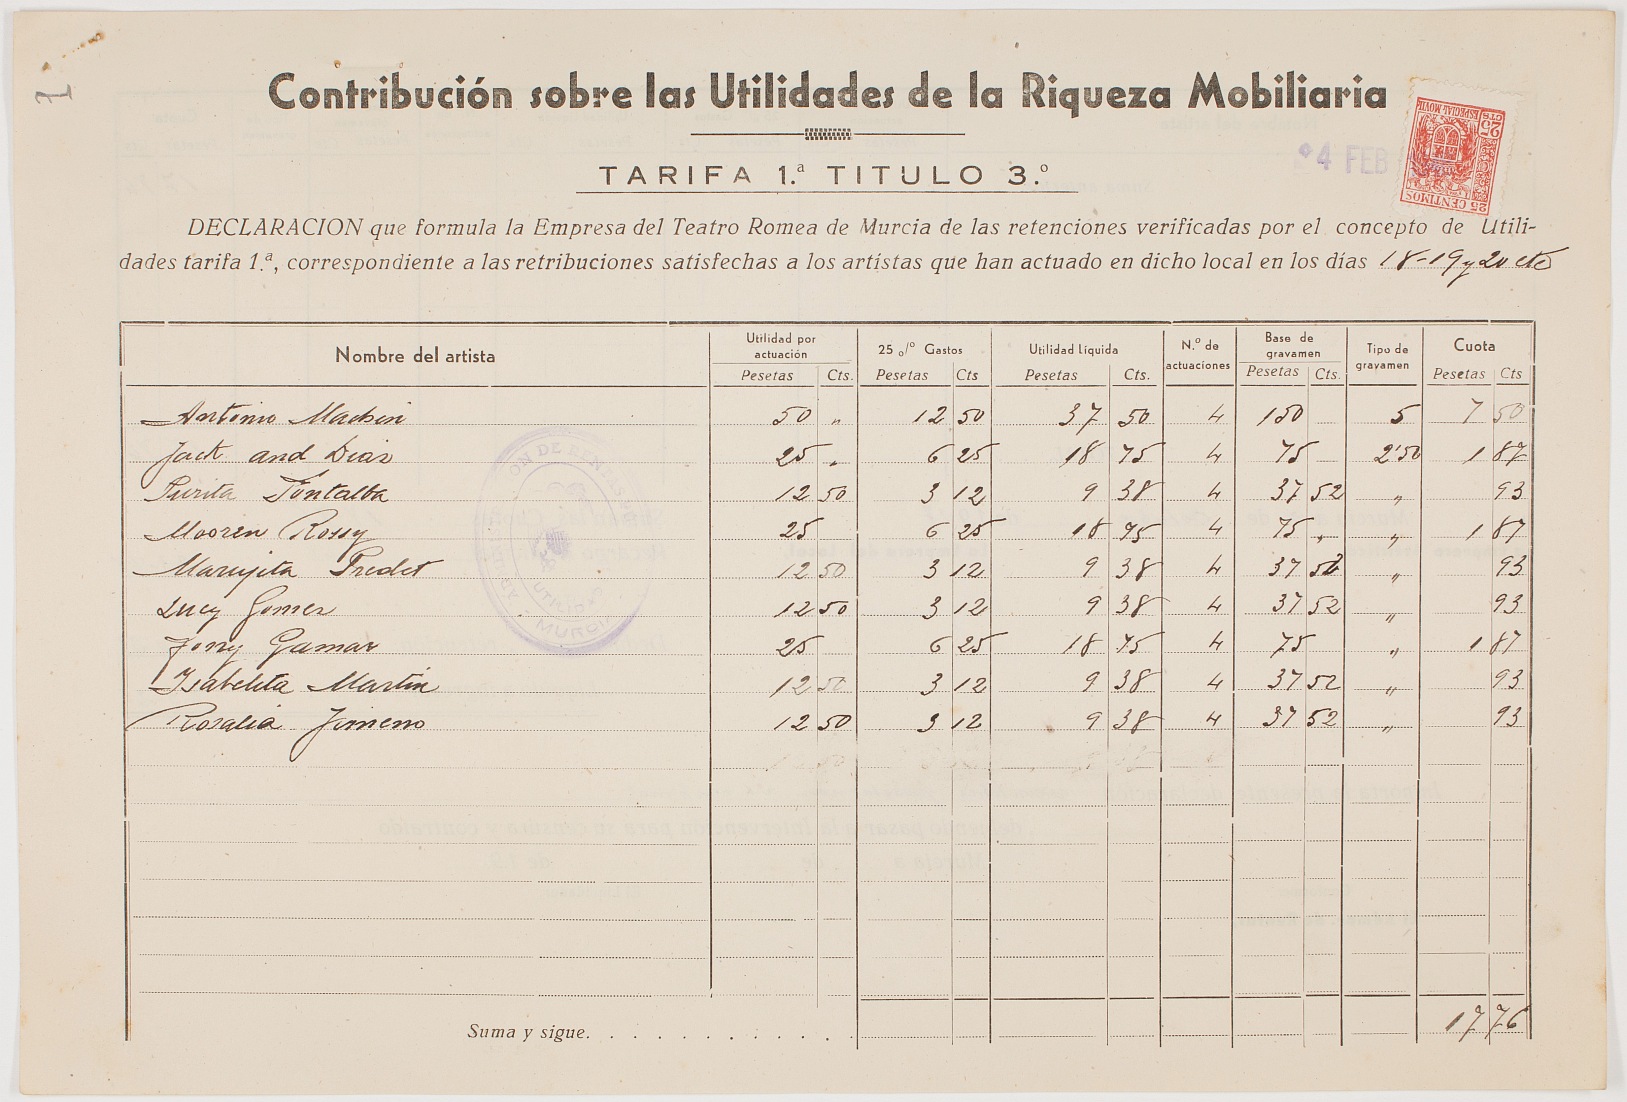 1
Contribución sobre las Utilidades de la Riqueza Mobiliaria
ESPECIAL MOVIL
25 CTS
25 CENTIMOS
4 FEB
TARIFA 1.ª TITULO 3.º
DECLARACION que formula la Empresa del Teatro Romea de Murcia de las retenciones verificadas por el concepto de Utili-
dades tarifa 1.ª, correspondiente a las retribuciones satisfechas a los artístas que han actuado en dicho local en los días 18-19 y 20 cte
Nombre del artista Utilidad por actuación 25 o/o Gastos Utilidad Líquida N.º de actuaciones Base de gravamen Tipo de gravamen Cuota
Pesetas Cts. Pesetas Cts Pesetas Cts. Pesetas Cts. Pesetas Cts
Antonio Machin 50 " 12 50 37 50 4 150 5 7 50
Jack and Diaz 25 " 6 25 18 75 4 75 2'50 1 87
Purita Fontalba 12 50 3 12 9 38 4 37 52 " 93
Mooren Rossy 25 6 25 18 75 4 75 " " 1 87
Marujita Predet 12 50 3 12 9 38 4 37 52 " 93
Lucy Gomez 12 50 3 12 9 38 4 37 52 " 93
Jony Gamar 25 6 25 18 75 4 75 " 1 87
Isabelita Martin 12 50 3 12 9 38 4 37 52 " 93
Rosalia Jimeno 12 50 3 12 9 38 4 37 52 " 93
UTILIDADES
MURCIA
Suma y sigue. 17 76